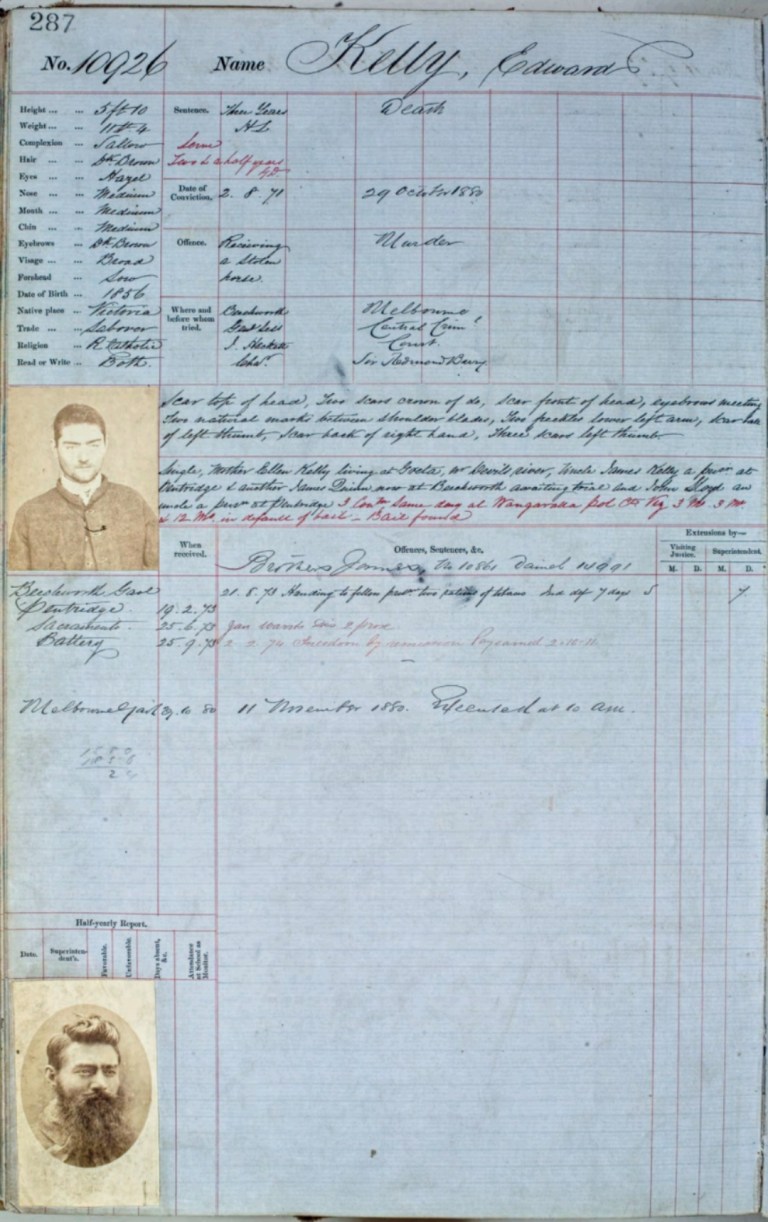 287
No. 10926 Name Kelly, Edward
Height ... ... 5 ft 10
Weight ... ... 11 st 4
Complexion ... Sallow
Hair ... ... Dk Brown
Eyes ... ... Hazel
Nose ... ... Medium
Mouth ... ... Medium
Chin ... ... Medium
Eyebrows ... Dk Brown
Visage ... ... Broad
Forehead ... Low
Date of Birth ... 1856
Native place ... Victoria
Trade ... ... Laborer
Religion ... R Catholic
Read or Write ... Both.
Sentence. Three Years Death
H L
Serve
Two & a half years
Date of Conviction. 2. 8. 71 29 October 1880
Offence. Receiving Murder
a stolen
horse.
Where and before whom tried. Beechworth Melbourne
Genl Sess Central Crim
J. Hackett Court
Sir Redmond Barry
Scar top of head, Two scars crown of do, scar front of head, eyebrows meeting
Two natural marks between shoulder blades, Two freckles lower left arm, scar ball
of left thumb, scar back of right hand, Three scars left thumb
Single, Mother Ellen Kelly living at Greta, nr Devils river, Uncle James Kelly a prisr at
Pentridge & another James Quinn now at Beechworth awaiting trial and John Lloyd an
uncle a prisr at Pentridge 3 Conns same day at Wangaratta Pol Ct Viz 3 Ms. 3 Ms
& 12 Ms. in default of bail - Bail found
When received.
Offences, Sentences, &c.
Extensions by—
Visiting Justice.
Superintendent.
M. D. M. D.
Brothers James, No 10861 Daniel 14991
Beechworth Gaol 21. 5. 73 Handing to fellow prisr two rations of 7 days 5 7
Pentridge. 19. 2. 73
Sacramento. 25. 6. 73
Battery 25. 9. 73 2. 2. 74 Freedom by remission
Melbourne Gaol 29. 10. 80 11 November 1880. Executed at 10 am.
1880
Half-yearly Report.
Date.
Superintendent's.
Favorable.
Unfavorable.
Days absent, &c.
Attendance at School as Monitor.